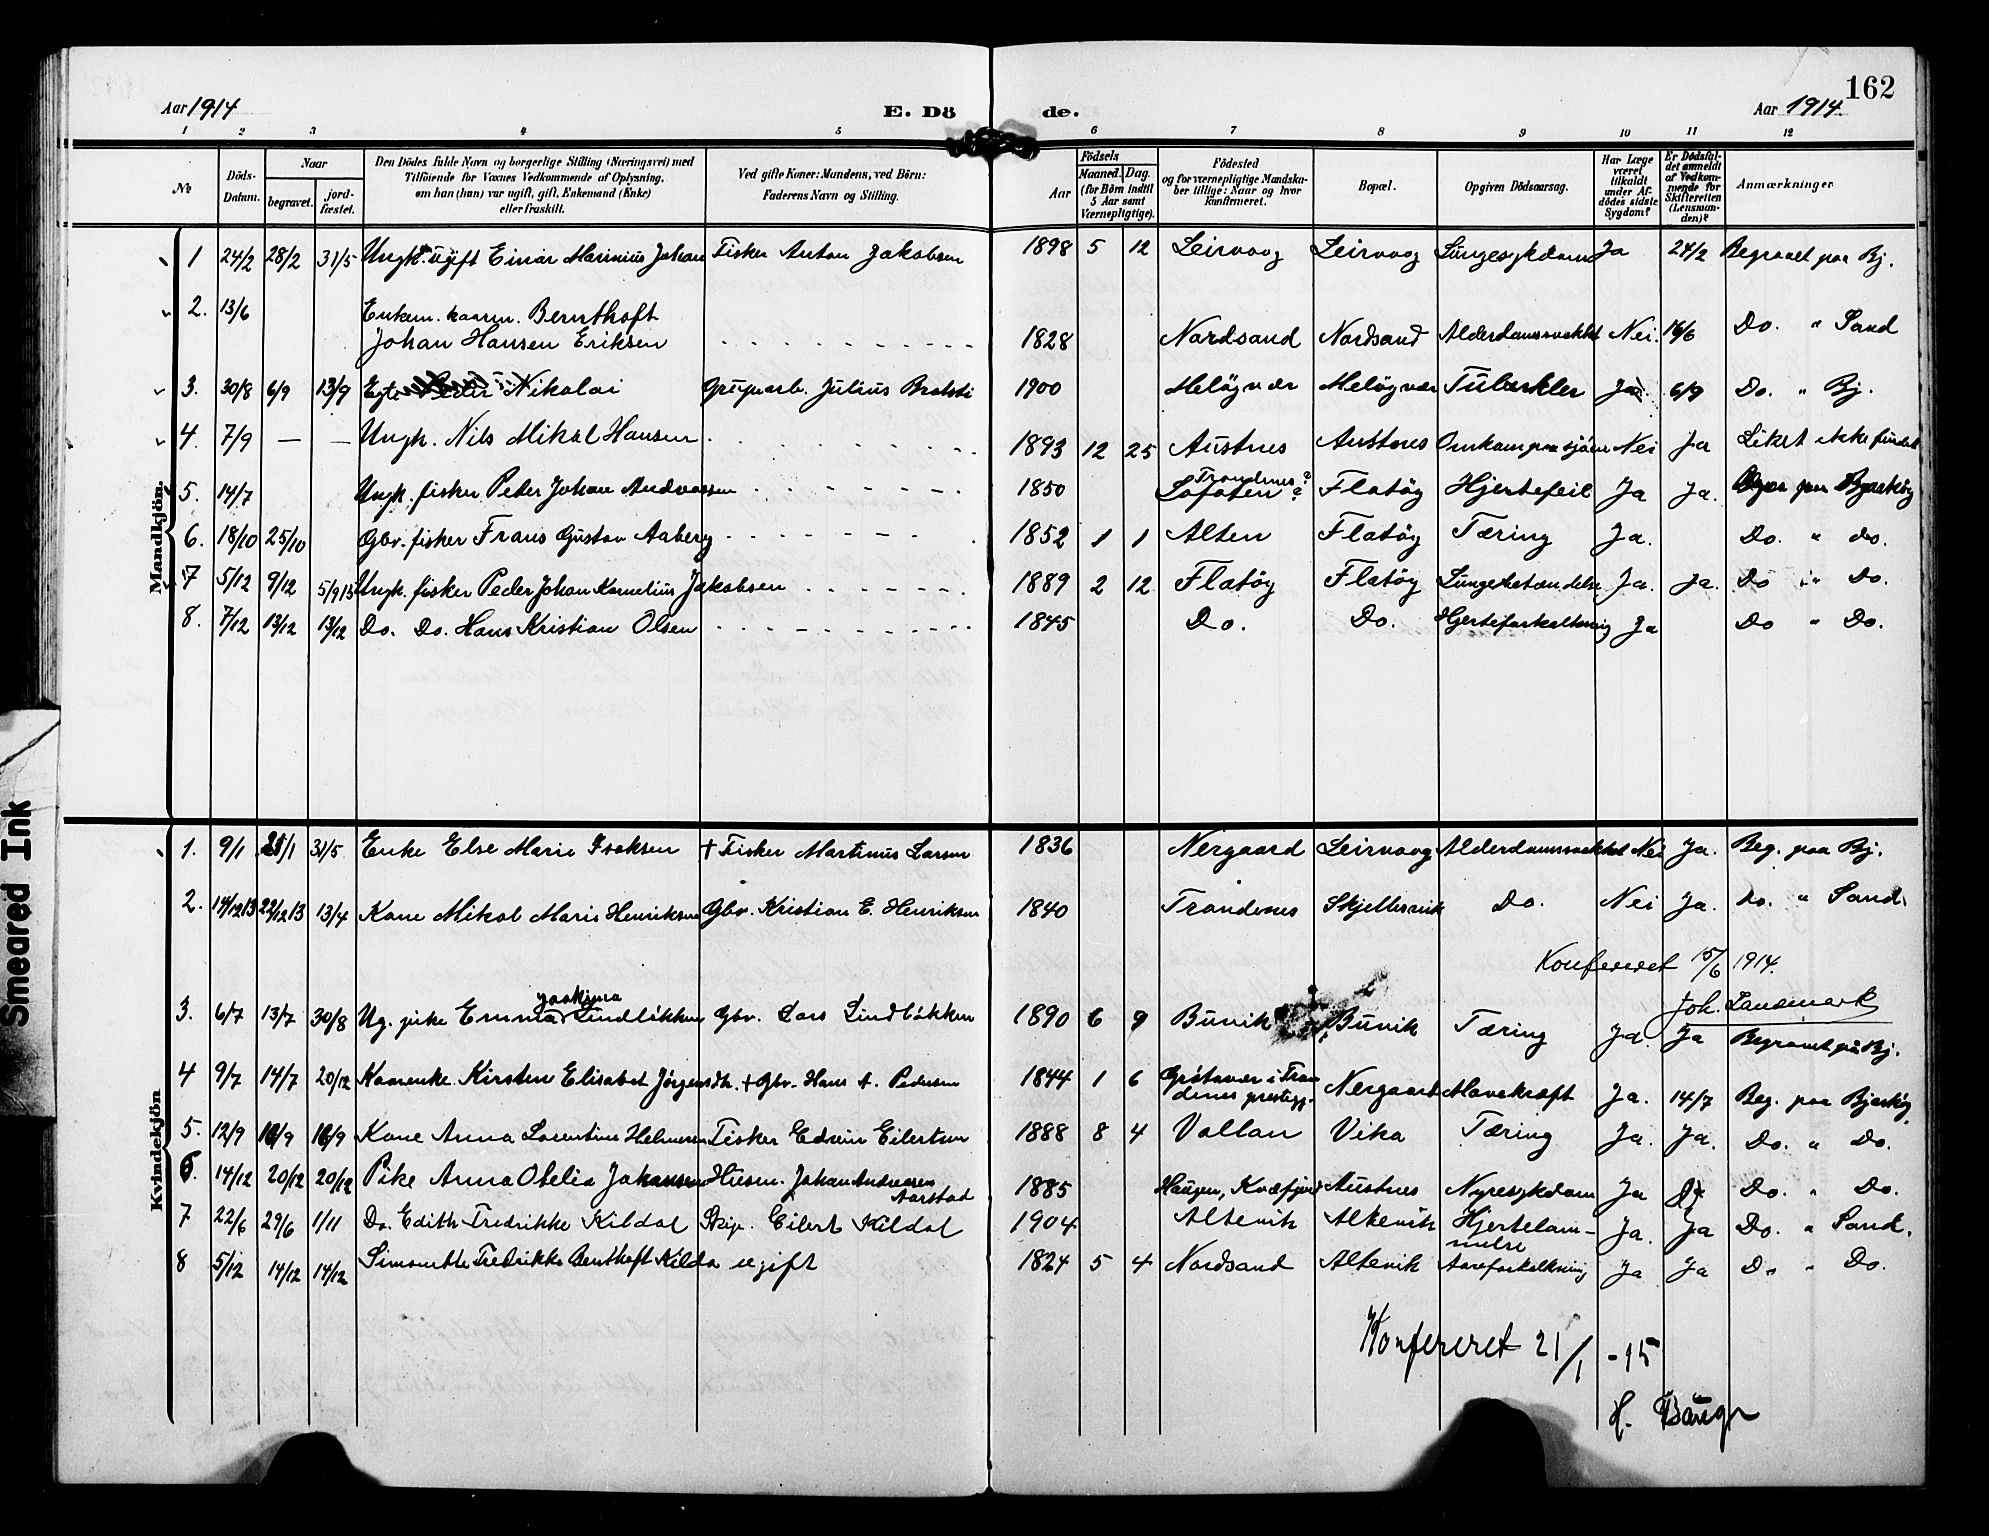 162
Aar 1914
E. Dö
de.
Aar 1914.
1 2 3 4 5 6 7 8 9 10 11 12
No
Döds-Datum.
Naar
begravet.
jord-fæstet.
Den Dödes fulde Navn og borgerlige Stilling (Næringsvei) med
Tilföiende for Voxnes Vedkommende af Oplysning,
om han (hun) var ugift, gift, Enkemand (Enke)
eller fraskilt.
Ved gifte Koner: Mandens, ved Börn:
Faderens Navn og Stilling.
Födsels
Aar
Maaned. Dag.
(for Börn indtil
5 Aar samt
Værnepligtige).
Födested
og for værnepligtige Mandska-
ber tillige: Naar og hvor
konfirmeret.
Bopæl.
Opgiven Dödsaarsag.
Har Læge
været
tilkaldt
under Af-
dödes sidste
Sygdom?
Er Dödsfal-
det anmeldt
af Vedkom-
mende for
Skifteretten
(Lensman-
den)?
Anmærkninger
Mandkjön.
1 24/2 28/2 31/5 Ungk. ugift Einar Marinius Johan Fisker Anton Jakobsen 1898 5 12 Leirvaag Leirvaag Lungesykdom Ja 24/2 Begravet paa Bj.
2. 13/6 Enkem. kaarm. Bernthoft
Johan Hansen Eriksen 1828 Nordsand Nordsand Alderdomssvakhet Nei. 16/6 Do. " Sand
3. 30/8 6/9 13/9 Nikolai Grupearb. Julius 1900 Meløyvær Meløyvær Ja. 6/9 Do. " Bj.
4. 7/9 — — Ungk. Nils Mikal Hansen 1893 12 25 Austnes Austnes Omkom paa sjøen Nei Ja Liket ikke fundet
5. 14/7 Ungk. fisker Peder Johan Andreassen 1850 Trondenes?
Lofoten? Flatøy Hjertefeil Ja Ja. paa Bjarkøy
6. 18/10 25/10 Gbr. fisker Frans Gustav Aaberg 1852 1 1 Alten Flatøy Tæring Ja. Do. " do.
7 5/12 9/12 5/9 15 Ungk. fisker Peder Johan Kornelius Jakobsen 1889 2 12 Flatøy Flatøy Lungebetændelse Ja. Ja. Do " Do.
8. 7/12 13/12 13/12 Do. Do. Hans Kristian Olsen 1845 Do. Do. Hjerteforkalkning Ja Do " Do.
Kvindekjön
1. 9/1 /1 31/5 Enke Else Marie Isaksen + Fisker Martinus Larsen 1836 Nergaard Leirvaag Alderdomssvakhet Nei Ja. Beg. paa Bj.
2. 14/12 13 22/12 13 13/4 Kone Mikal Marie Henriksen Gbr. Kristian E. Henriksen 1840 Trondenes Skjellesvik Do. Nei Ja. Do. " Sand.
Konfereret 15/6 1914.
Joh. Landmark
3. 6/7 13/7 30/8 Ug. pike Emma Joakima Lindbäkken Gbr. Lars Lindbäkken 1890 6 9 Bunik Bunik Tæring Ja. Ja Begravet på Bj.
4 9/7 14/7 20/12 Kaarenke. Kirsten Elisabet Jørgensdt. + Gbr. Hans A. Pedersen 1844 1 6 Grøtavær i Tron
denes prestegj. Nergaard Mavekræft Ja. 14/7 Beg. paa Bjarkøy
5. 12/9 /9 /9 Kone Anna Lorentine Helmersen Fisker Edvin Eilertsen 1888 8 4 Vollan Vika Tæring Ja. Ja. Do. " Do.
6. 14/12 20/12 20/12 Pike Anna Otelia Johansen Husm. Johan Andreasen
Aarstad 1885 Haugen, Kvæfjord Austnes Nyresykdom Ja Do. " Do.
7 22/6 29/6 1/11 Do. Edith Fredrikke Kildal Skip. Eilert Kildal 1904 Altevik Altevik Hjertelam-
melse Ja. Ja Do " Sand.
8 5/12 14/12 14/12 Simonette Fredrikke Benthoft Kildal ugift 1824 5 4 Nordsand Altevik Aareforkalkning Ja Ja Do " Do.
Konfereret 21/1 - 15
H. Bauge
Smeared Ink